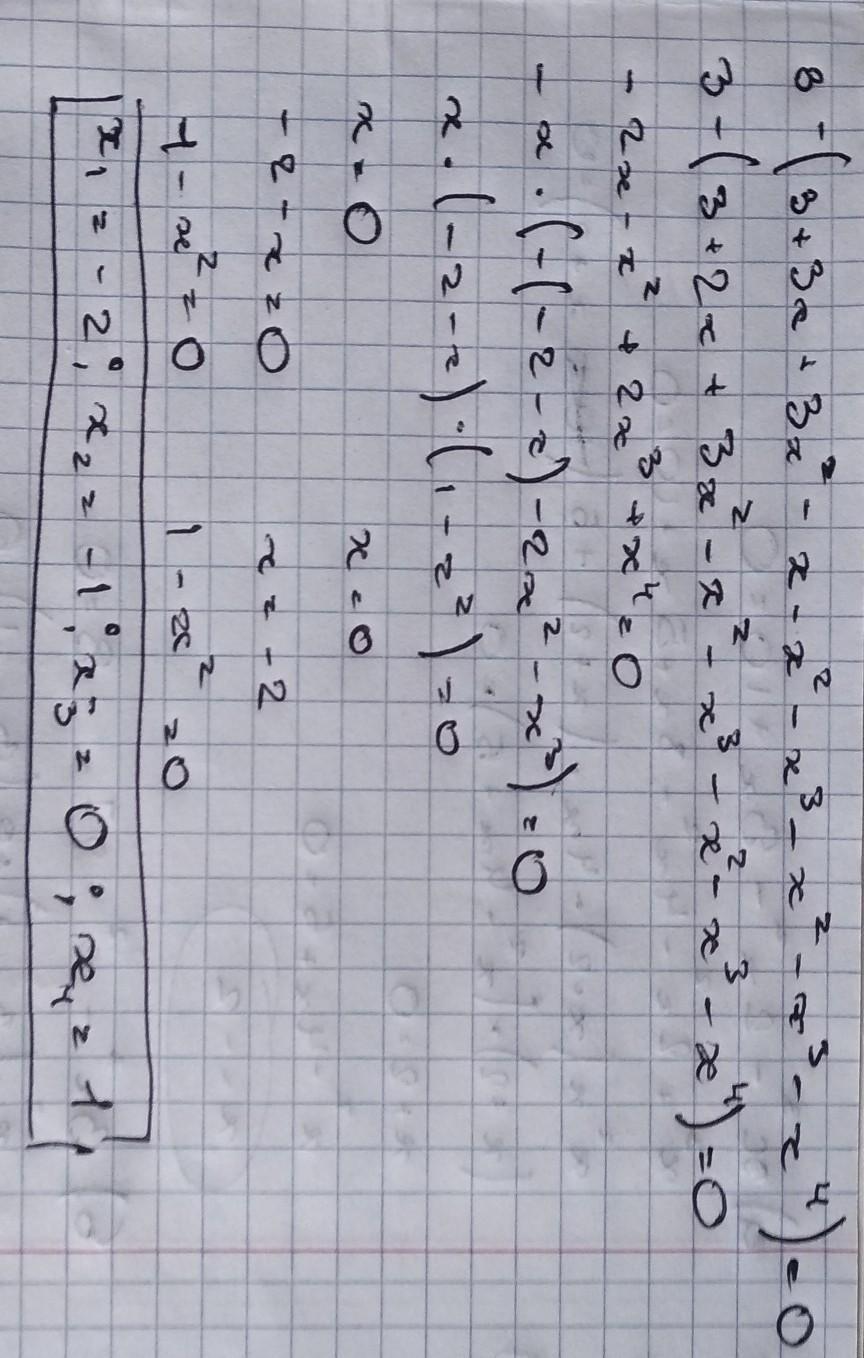 8 - (3 + 3x + 3x² - x - x² - x³ - x² - x³ - x⁴) = 0
3 - (3 + 2x + 3x² - x² - x³ - x² - x³ - x⁴) = 0
- 2x - x² + 2x³ + x⁴ = 0
- x · (-(-2 - x) - 2x² - x³) = 0
x · (-2 - x) · (1 - x²) = 0
x = 0 x = 0
- 2 - x = 0 x = -2
1 - x² = 0 1 - x² = 0
x₁ = -2; x₂ = -1; x₃ = 0; x₄ = 1;